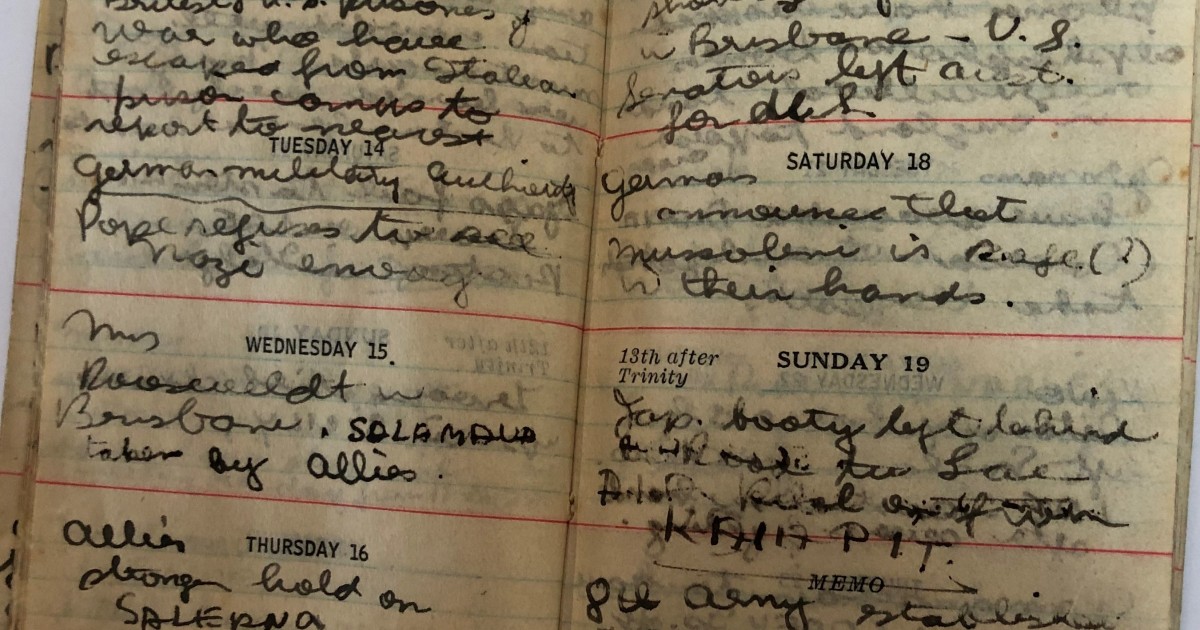 British U.S. prisoners of
War who have
escaped from Italian
prison camps to
report to nearest
TUESDAY 14
German military authority
Pope refuses to see
Nazi envoy
Mrs
WEDNESDAY 15
Roosevelt in
Brisbane. SALAMAUA
taken by Allies.
Allies
THURSDAY 16
stronger hold on
SALERNO
in Brisbane - U.S.
Senators left Aust.
for U.S.
SATURDAY 18
Germans
announce that
Mussolini is safe (?)
in their hands.
13th after
Trinity
SUNDAY 19
Jap. booty left behind
to Lae
A.I.F.
KAIAPIT
MEMO
8th Army establishes